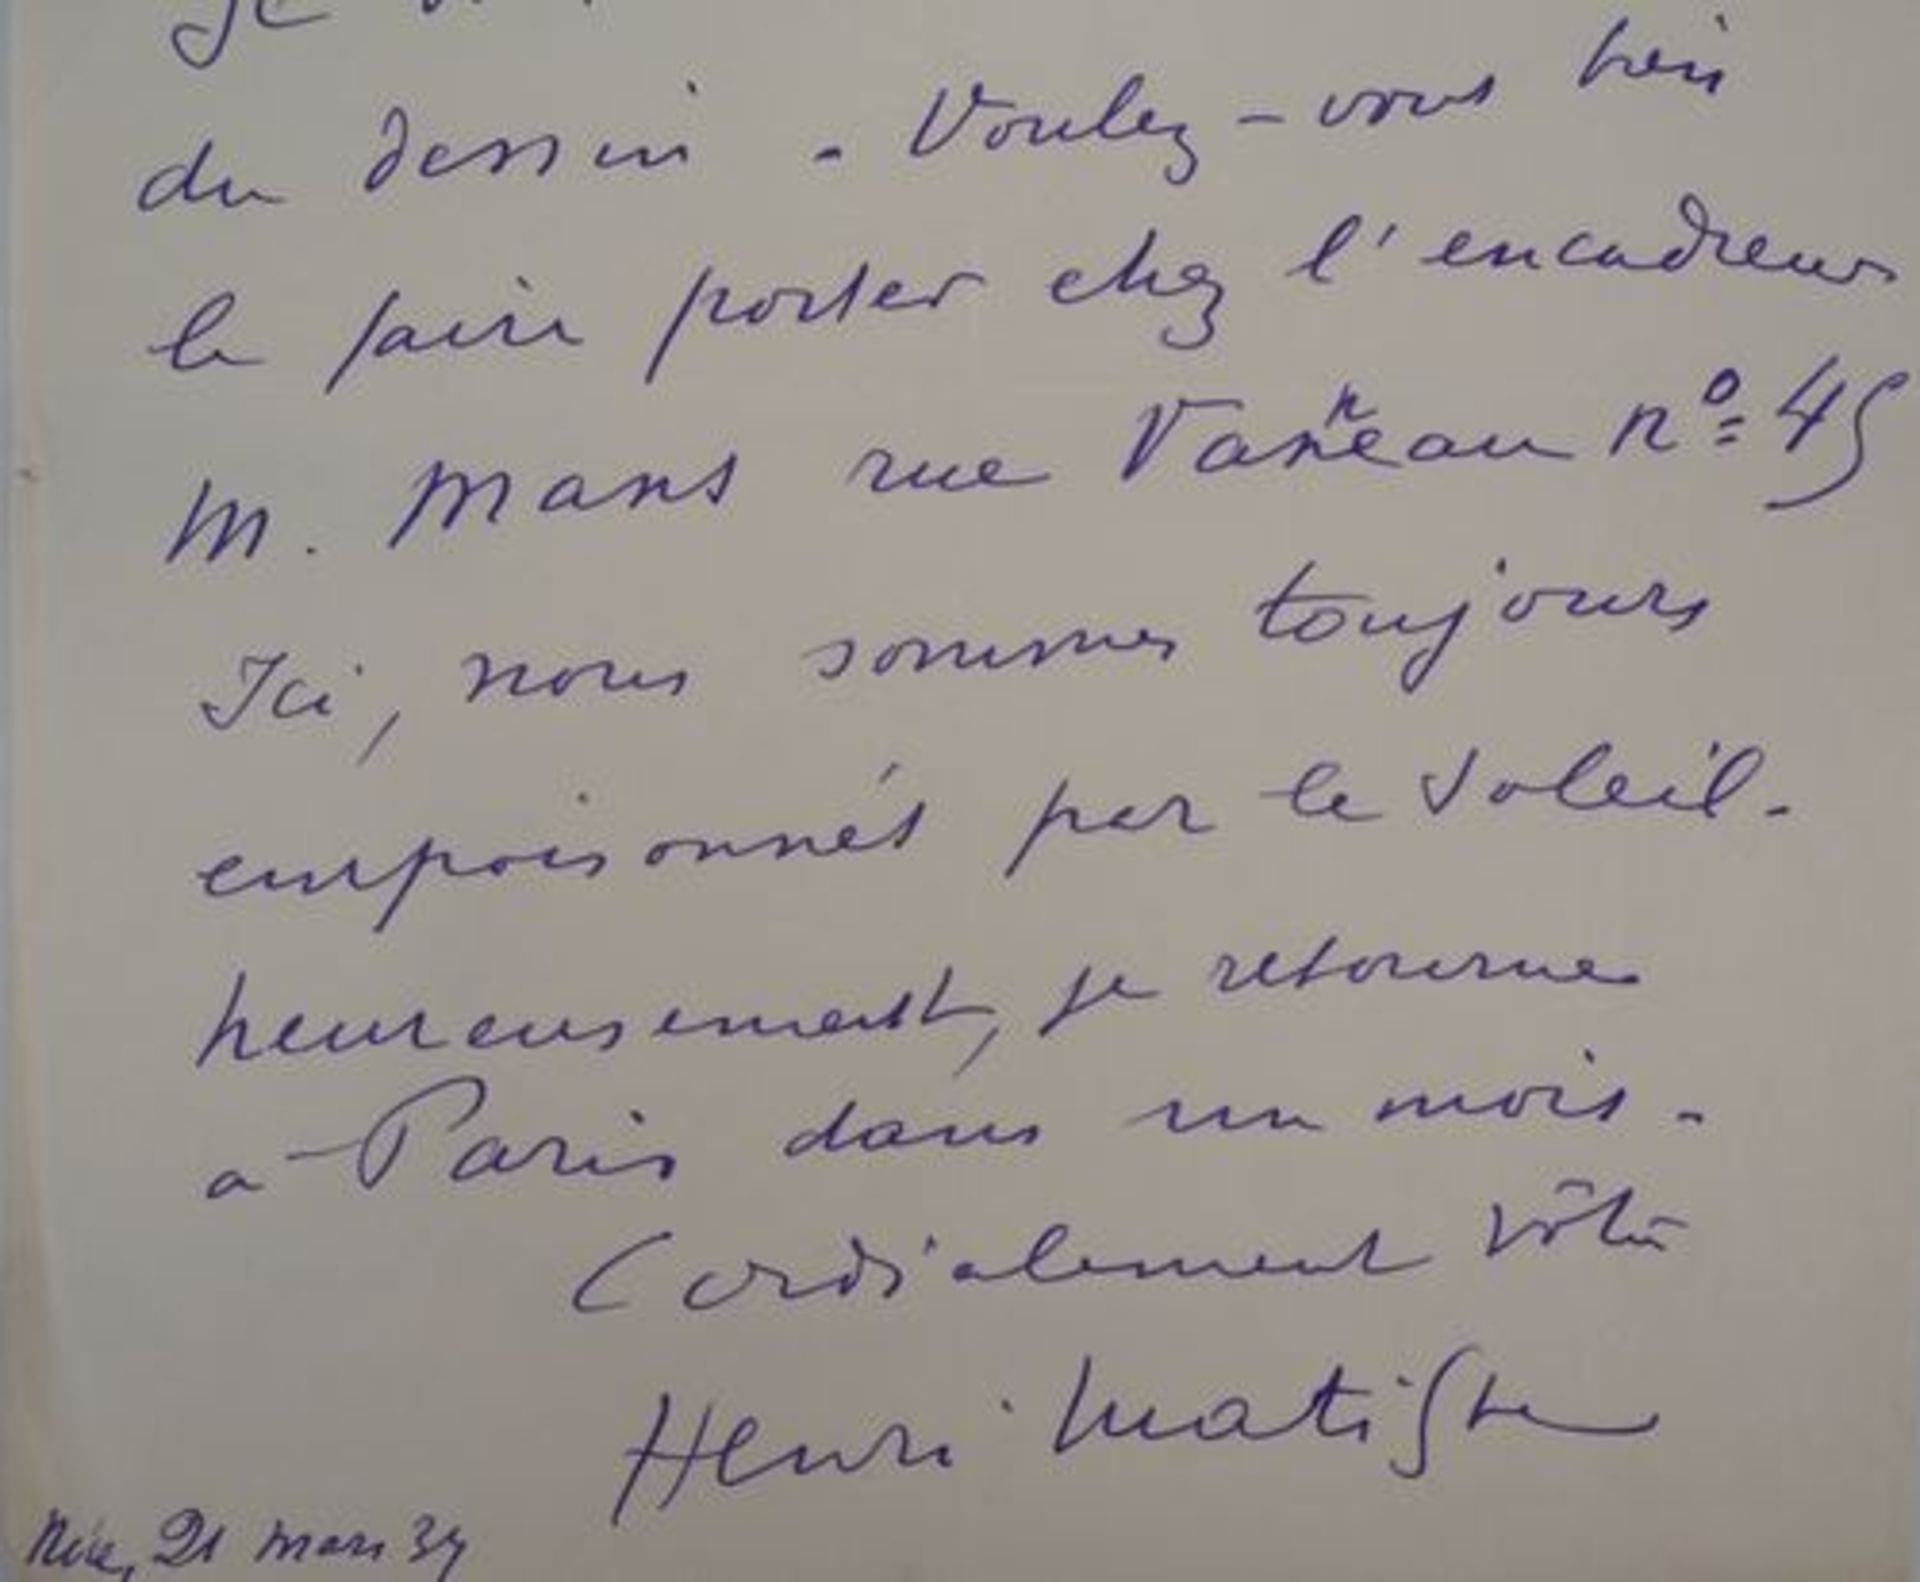 Je
du dessin - Voulez-vous bien
le faire porter chez l'encadreur
M. Mans rue Vaneau nº 45
Ici, nous sommes toujours
empoisonnés par le soleil.
heureusement, je retourne
a Paris dans un mois -
Cordialement vôtre
Henri Matisse
Nice, 21 mars 34